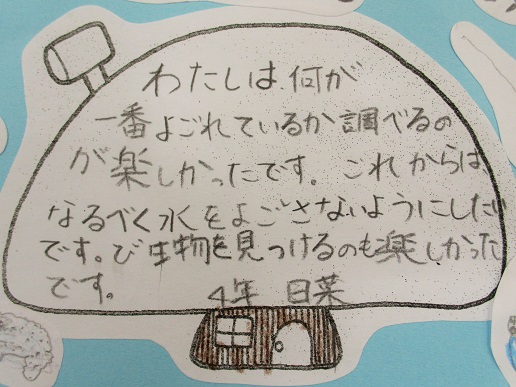 わたしは、何が
一番よごれているか調べるの
が楽しかったです。これからは、
なるべく水をよごさないようにしたい
です。び生物を見つけるのも楽しかった
です。 4年 日菜